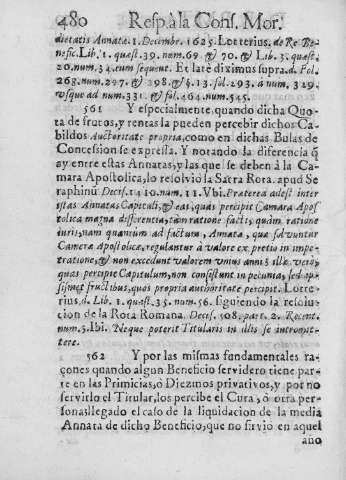 480 Resp. à la Cons. Mor.
dietatis Annatæ. 1. Decembr. 1625. Lotterius. de Re Be-
nefic. Lib. 1. quæst. 39. num. 69 & 70. & Lib. 3. quæst.
20. num. 34. cum sequent. Et latè diximus supra. d. Fol.
268. num. 297. & 298. & §. 13. fol. 293. à num. 329.
vsque ad num. 331. & fol. 464. num. 545.
561 Y especialmente, quando dicha Quo-
ta de frutos, y rentas la pueden percebir dichos Ca-
bildos Auctoritate propria, como en dichas Bulas de
Concession se expressa. Y notando la diferencia q̃
ay entre estas Annatas, y las que se deben à la Ca-
mara Apostolica, lo resolviò la Sacra Rota. apud Se
raphinũ Decis. 1410. num. 11. Vbi. Præterea adest inter
istas Annatas Capituli, & eas, quas percipit Camara Apos
tolica magna differentia, tàm ratione facti, quàm ratione
iuris, nam quanium ad factum, Annatæ, quæ solvuntur
Cameræ Apostolicæ, regulantur à valore ex pretio in impe-
tratione, & non excedunt valorem vnius anni; illæ verò,
quas percipit Capitulum, non consistunt in pecunia, sed ip-
sismet fructibus, quos propria authoritate percipit. Lotte-
rius. d. Lib. 1. quæst. 35. num. 56. siguiendo la resolu-
cion de la Rota Romana. Decis. 508. part. 2. Recent.
num. 5. Ibi. Neque poterit Titularis in illis se intromit-
tere.
562 Y por las mismas fundamentales ra-
çones quando algun Beneficio servidero tiene par-
te en las Primicias, ò Diezmos privativos, y por no
servirlo el Titular, los percibe el Cura, ò otra per-
sona; llegado el caso de la liquidacion de la media
Annata de dicho Beneficio, que no sirviò en aquel
año